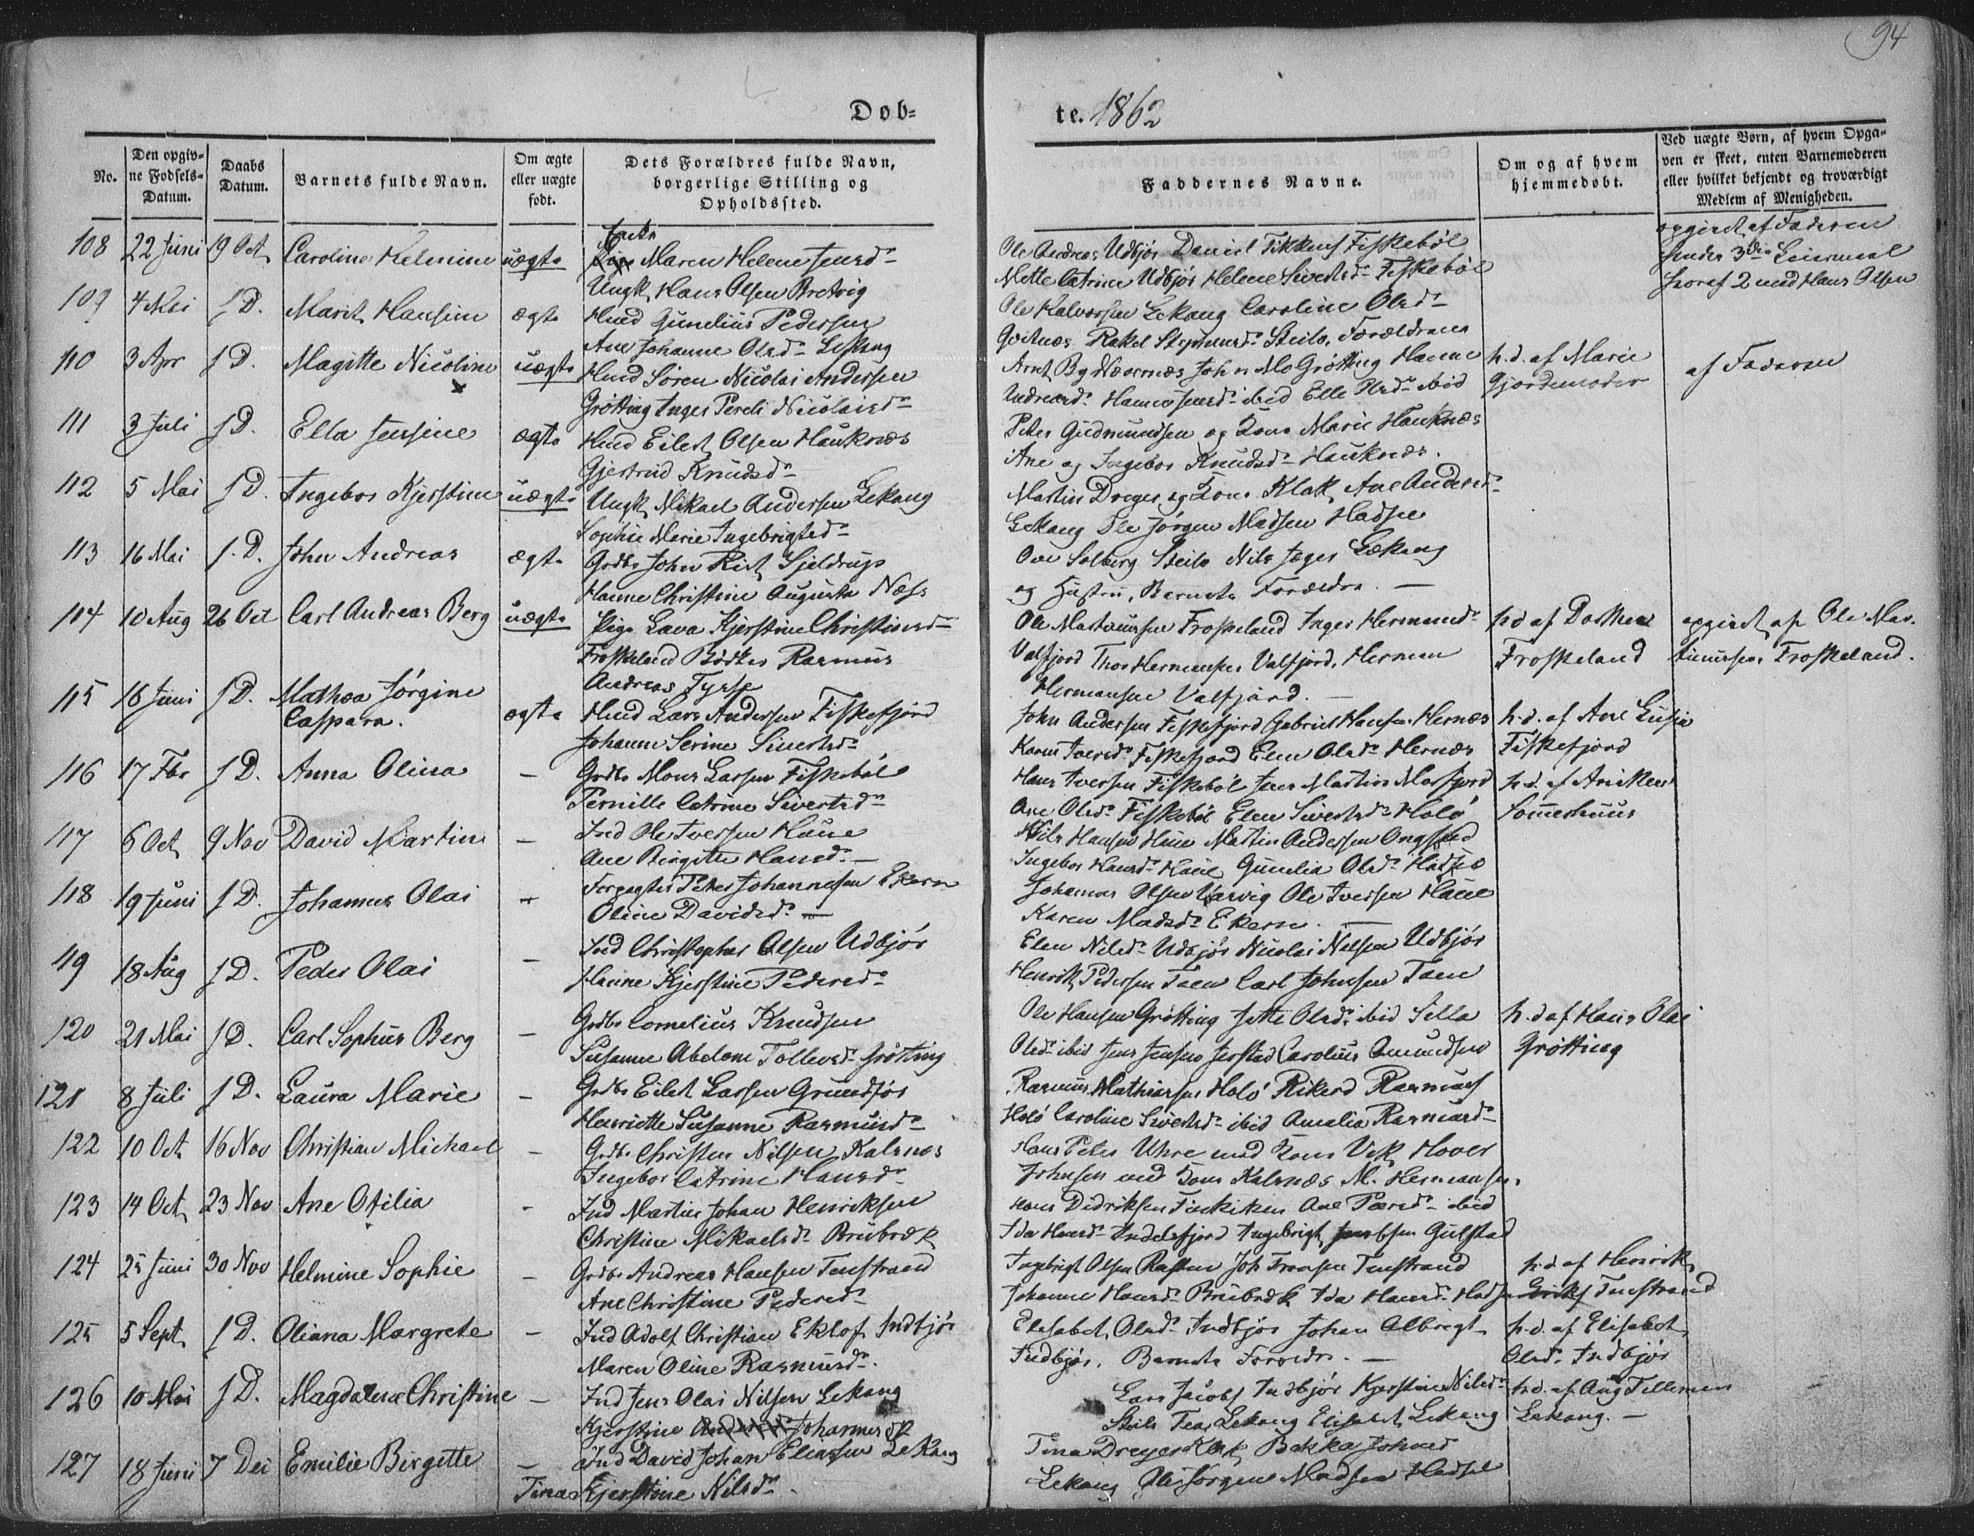 94
Dob=
te. 1862
No.
Den opgiv-
ne Fødsels-
Datum.
Daabs
Datum.
Barnets fulde Navn.
Om ægte
eller uægte
født.
Dets Forældres fulde Navn,
borgerlige Stilling og
Opholdssted.
Faddernes Navne.
Om og af hvem
hjemmedøbt.
Ved uægte Børn, af hvem Opga-
ven er skeet, enten Barnemoderen
eller hvilket bekjendt og troværdigt
Medlem af Menigheden.
108 22 Juni 19 Oct Caroline Helmine uægte
Maren Helene Jensd.
Ungk. Hans Olsen Bretvig
Ole Andreas Udbjør Daniel Fiskebøl
Mette Catrine Udbjør Helene Sivertsd. Fiskebøl
opgivet af Faderen
under 3die Leiermaal
hvoraf 2 med Hans Olsen
109 4 Mai J D. Marit Hansine ægte
Huusd Gunelius Pedersen
Ane Johanne Olsd. Lekang
Ole Halvorsen Lekang Caroline Olsd.
Rakel Steilo, Forældrene
110 3 Apr J D. Magitte Nicoline uægte
Huusd Søren Nicolai Andersen
Grøtting Inger Perdi Nicolaisd.
Arnt John Mo Grøtting Hanne
Andreasd. Hanna Jensd. ibid Elle Olsd. ibid
h.d. af Marie
Gjordemoder
af Faderen
111 3 Juli J D. Ella Jensine ægte
Huusd Eilert Olsen Hauknæs
Gjertrud Knudsd.
Peter Gudmundsen og Kone Marie Hauknæs
Ane og Ingebor Knudsd. Hauknæs.
112 5 Mai J D. Ingebor Kjerstine uægte
Ungk. Mikael Andersen Lekang
Sophie Marie Ingebrigtsd.
Martin Dreyer og Kone Klak, Ane Andersd.
Lekang Ole Jørgen Madsen Hadsel
113 16 Mai J. D. John Andreas ægte
Grdbr John Rist Sjeldrup
Hanne Christine Augusta Næss
Ove Solberg Steilo Nils Jeger Lekang
og Hustru, Barnets Forældre. —
114 10 Aug 26 Oct Carl Andreas Berg uægte
Pige Lava Kjerstine Christiansd.
Froskeland Bødker Rasmus
Andreas
Ole Martinussen Froskeland Inger Hermansd.
Valfjord Thor Hermansen Valfjord, Herman
Hermansen Valfjord. —
h.d af Dorthea
Froskeland
opgivet af Ole Mar-
tinussen Froskeland.
115 16 Juni J D. Mathea Jørgine
Caspara. ægte
Huusd Lars Andersen Fiskefjord
Johanna Serine Sivertsd.
John Andersen Fiskefjord Gabriel Hansen Hernæs
Karen Fiskefjord Elen Olsd. Hernæs
h.d. af Ane Lusia
Fiskefjord
116 17 Fbr J D. Anna Olina —
Grdbr Mons Larsen Fiskebøl
Pernille Catrine Sivertsd.
Hans Iversen Fiskebøl Jens Martin Morfjord
Ane Olsd. Fiskebøl Elen Sivertsd. Holø
h.d. af Aniken
Sommerhuus
117 6 Oct 9 Nov David Martin —
Ind Ole Iversen Haue
Ane Birgitte Hansd. —
Nils Hansen Haue Martin Andersen
Ingebor Hansd. Haue Gunelia Olsd. Hadsel
118 19 Juni J D. Johannes Olai —
Forpagter Peter Johannesen Ekern
Oline Davidsd. —
Johannes Olsen Varvig Ole Iversen Haue
Karen Madsd. Ekern. —
119 18 Aug J D. Peder Olai —
Ind Christopher Olsen Udbjør
Hanne Kjerstine Pedersd.
Elen Nilsd. Udbjør Nicolai Nilsen Udbjør
Henrik Pedersen Taen Carl Johnsen Taen
120 21 Mai J D. Carl Sophus Berg —
Grdbr Cornelius Knudsen
Susanne Abelone Tollevsd. Grøtting
Ole Hansen Grøtting Jette Olsd. ibid Silla
Olsd. ibid Jens Jensen Carolius Amundsen
h.d af Hans Olai
Grøtting
121 8 Juli J D. Laura Marie —
Grdbr Eilert Larsen Grundfør
Henriette Susanne Rasmusd.
Rasmus Mathiasen Holø Rikard Rasmus
Holø Caroline Sivertsd. ibid Amalia Rasmusd.
122 10 Oct 16 Nov Christian Michael —
Grdbr Christen Nilsen Kalsnæs
Ingebor Catrine Hansd.
Hans Peter Uhre med Kone Vik Hover
Johnsen med Kone Kalsnæs M. Hermansen.
123 14 Oct 23 Nov Ane Otilia -
Ind Martin Johan Henriksen
Christine Mikaelsd. Brubrek
Hans Didriksen Finkiken Ane Pedersd. ibid
Ida Hansd. Indelsfjord Ingebrigt Gulstad
124 25 Juni 30 Nov Helmine Sophie —
Grdbr Andreas Hansen Tenstrand
Ane Christine Pedersd.
Ingebrigt Olsen Raften Joh Fransen Tenstrand
Johanne Hansd. Brubrek Ida Hansd. Hadsel
h.d af Henrik
Tenstrand
125 5 Sept J D. Oliana Margrete —
Ind Adolf Christian Eklof Indbjør
Maren Oline Rasmusd.
Elisabet Olsd. Indbjør Johan Albrigt
Indbjør. Barnets Forældre. —
h.d. af Elisabet
Olsd. Indbjør
126 10 Mai J D. Magdalena Christine —
Ind Jens Olai Nilsen Lekang
Kjerstine Johannesd.
Lars Jacobs Indbjør Kjerstine Nilsd.
Lekang Elisabet Lekang
h.d. af Aug Tellemen
Lekang. —
127 18 Juni 7 Dec Emilie Birgitte —
Ind David Johan Eliassen Lekang
Tina Kjerstine Nilsd.
Tina Dreyer Klak, Bekka Johnsd
Lekang Ole Jørgen Madsen Hadsel